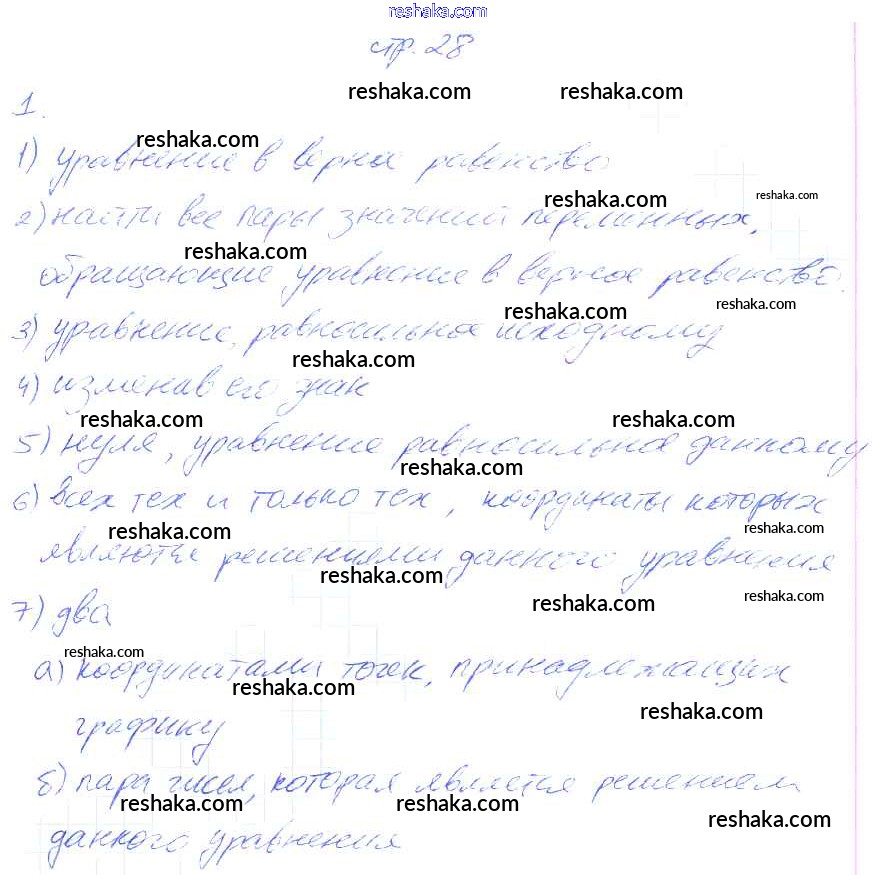 reshaka.com
стр. 28
reshaka.com reshaka.com
1.
reshaka.com
1) уравнение в верное равенство
reshaka.com reshaka.com
2) найти все пары значений переменных,
reshaka.com
обращающие уравнение в верное равенство.
reshaka.com reshaka.com
3) уравнение, равносильное исходному
reshaka.com
4) изменив его знак
reshaka.com reshaka.com
5) нуля, уравнение равносильное данному
reshaka.com
6) всех тех и только тех, координаты которых
reshaka.com reshaka.com
являются решениями данного уравнения
reshaka.com
reshaka.com reshaka.com
7) два
reshaka.com
а) координатами точек, принадлежащих
reshaka.com
reshaka.com
графику
б) пара чисел, которая является решением
reshaka.com reshaka.com reshaka.com
данного уравнения